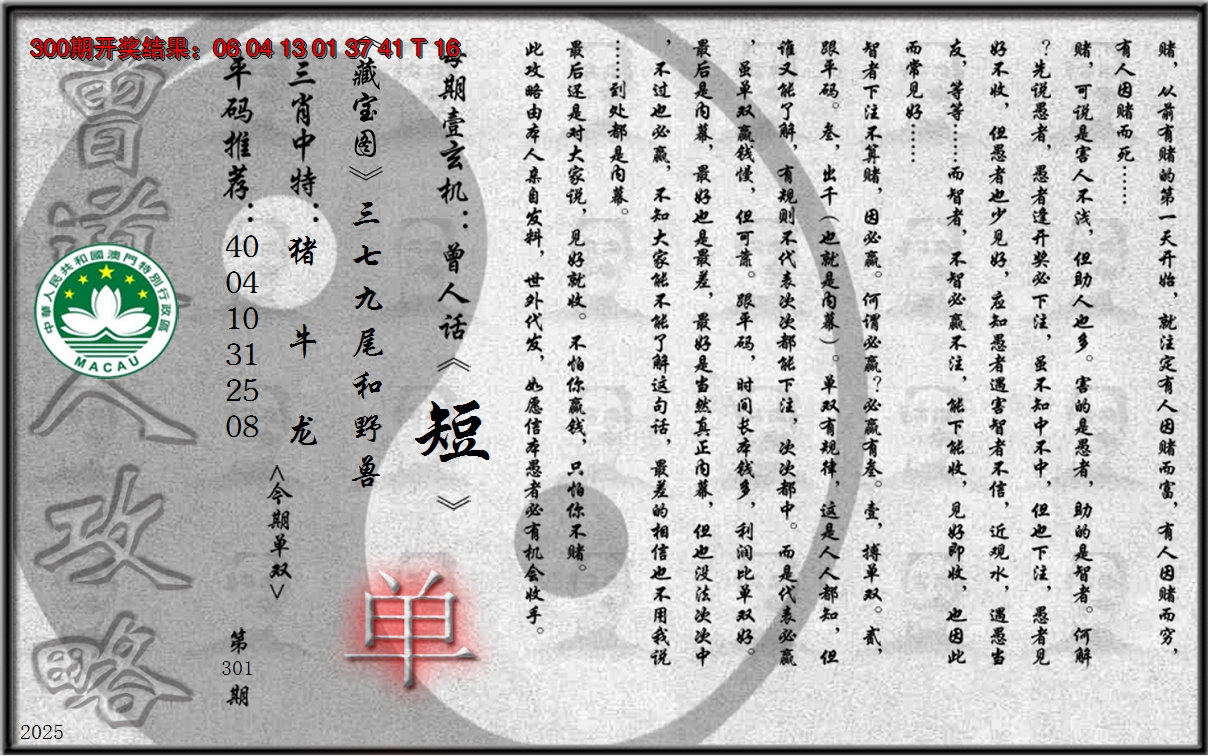 300期开奖结果：06 04 13 01 37 41 T 16
赌，从前有赌的第一天开始，就注定有人因赌而富，有人因赌而穷，
有人因赌而死……
赌，可说是害人不浅，但助人也多。害的是愚者，助的是智者。何解
？先说愚者，愚者逢开奖必下注，虽不知中不中，但也下注，愚者见
好不收，但愚者也少见好，应知愚者遇害智者不信，近观水，遇愚当
友，等等……而智者，不智必赢不注，能下能收，见好即收，也因此
而常见好……
智者下注不算赌，因必赢。何谓必赢？必赢有叁。壹，搏单双。贰，
跟平码。叁，出千（也就是内幕）。单双有规律，这是人人都知，但
谁又能了解，有规则不代表次次都能下注，次次都中。而是代表必赢
，虽单双赢钱慢，但可靠。跟平码，时间长本钱多，利润比单双好。
最后是内幕，最好也是最差，最好是当然真正内幕，但也没法次次中
，不过也必赢，不知大家能不能了解这句话，最差的相信也不用我说
……到处都是内幕。
最后还是对大家说，见好就收。不怕你赢钱，只怕你不赌。
此攻略由本人亲自发料，世外代发，如愿信本愚者必有机会收手。
每期壹玄机：曾人话《短》
《藏宝图》三七九尾和野兽
单
三肖中特：猪 牛 龙
<今期单双>
平码推荐：
40
04
10
31
25
08
第
301
期
曾道人攻略
中華人民共和國澳門特別行政區
MACAU
2025